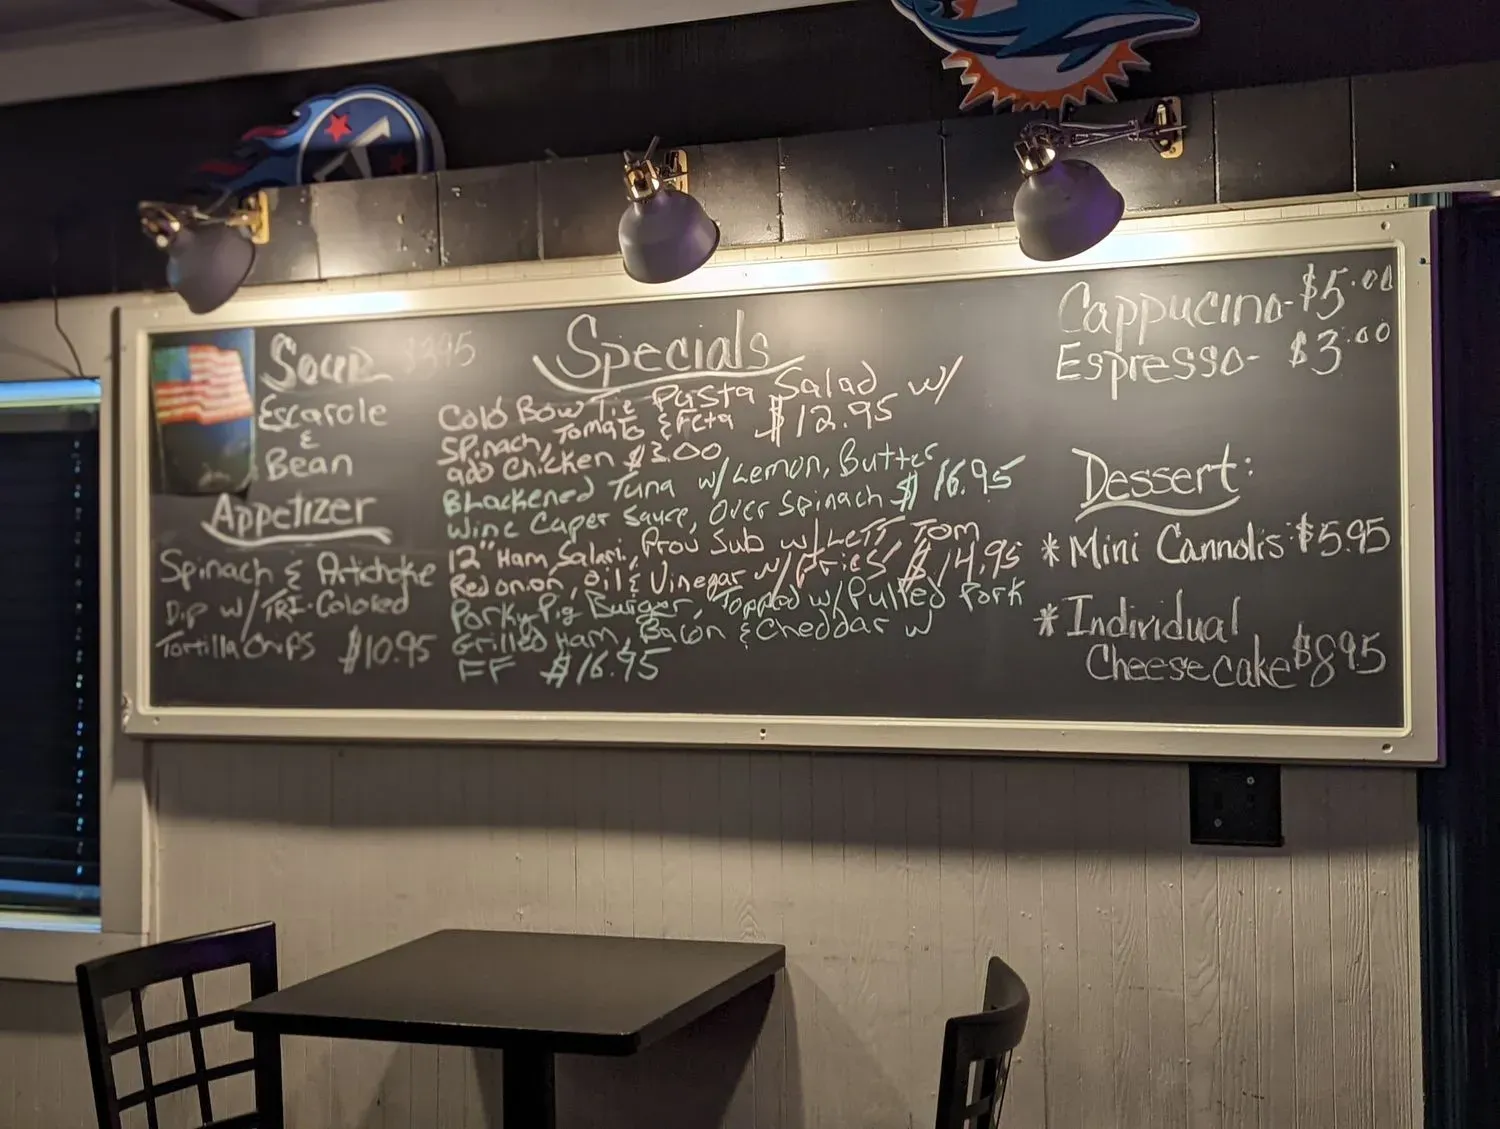 Soup $3.95
Escarole
&
Bean
Appetizer
Spinach & Artichoke
Dip w/ TRI-Colored
Tortilla Chips $10.95
Specials
Cold Bow Tie Pasta Salad w/
Spinach, Tomato & Feta $12.95
add Chicken $3.00
Blackened Tuna w/ Lemon, Butter
Wine Caper Sauce, Over Spinach $16.95
12" Ham, Salami, Prov Sub w/ Lett, Tom
Red onion, Oil & Vinegar w/ Fries $14.95
Porky Pig Burger, Topped w/ Pulled Pork
Grilled Ham, Bacon & Cheddar w
FF $16.95
Cappucino- $5.00
Espresso- $3.00
Dessert:
* Mini Cannolis $5.95
* Individual
Cheesecake $8.95